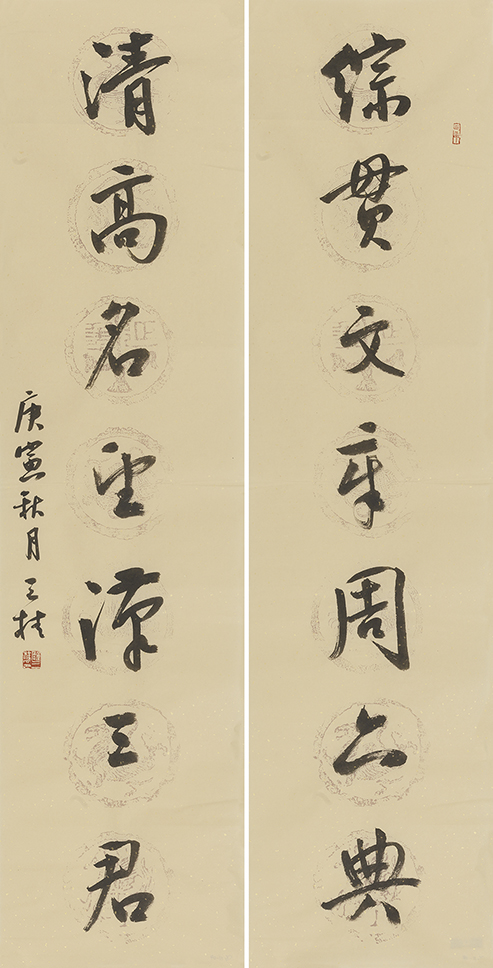 綜貫文章周六典
清高名望漢三君
庚寅秋月